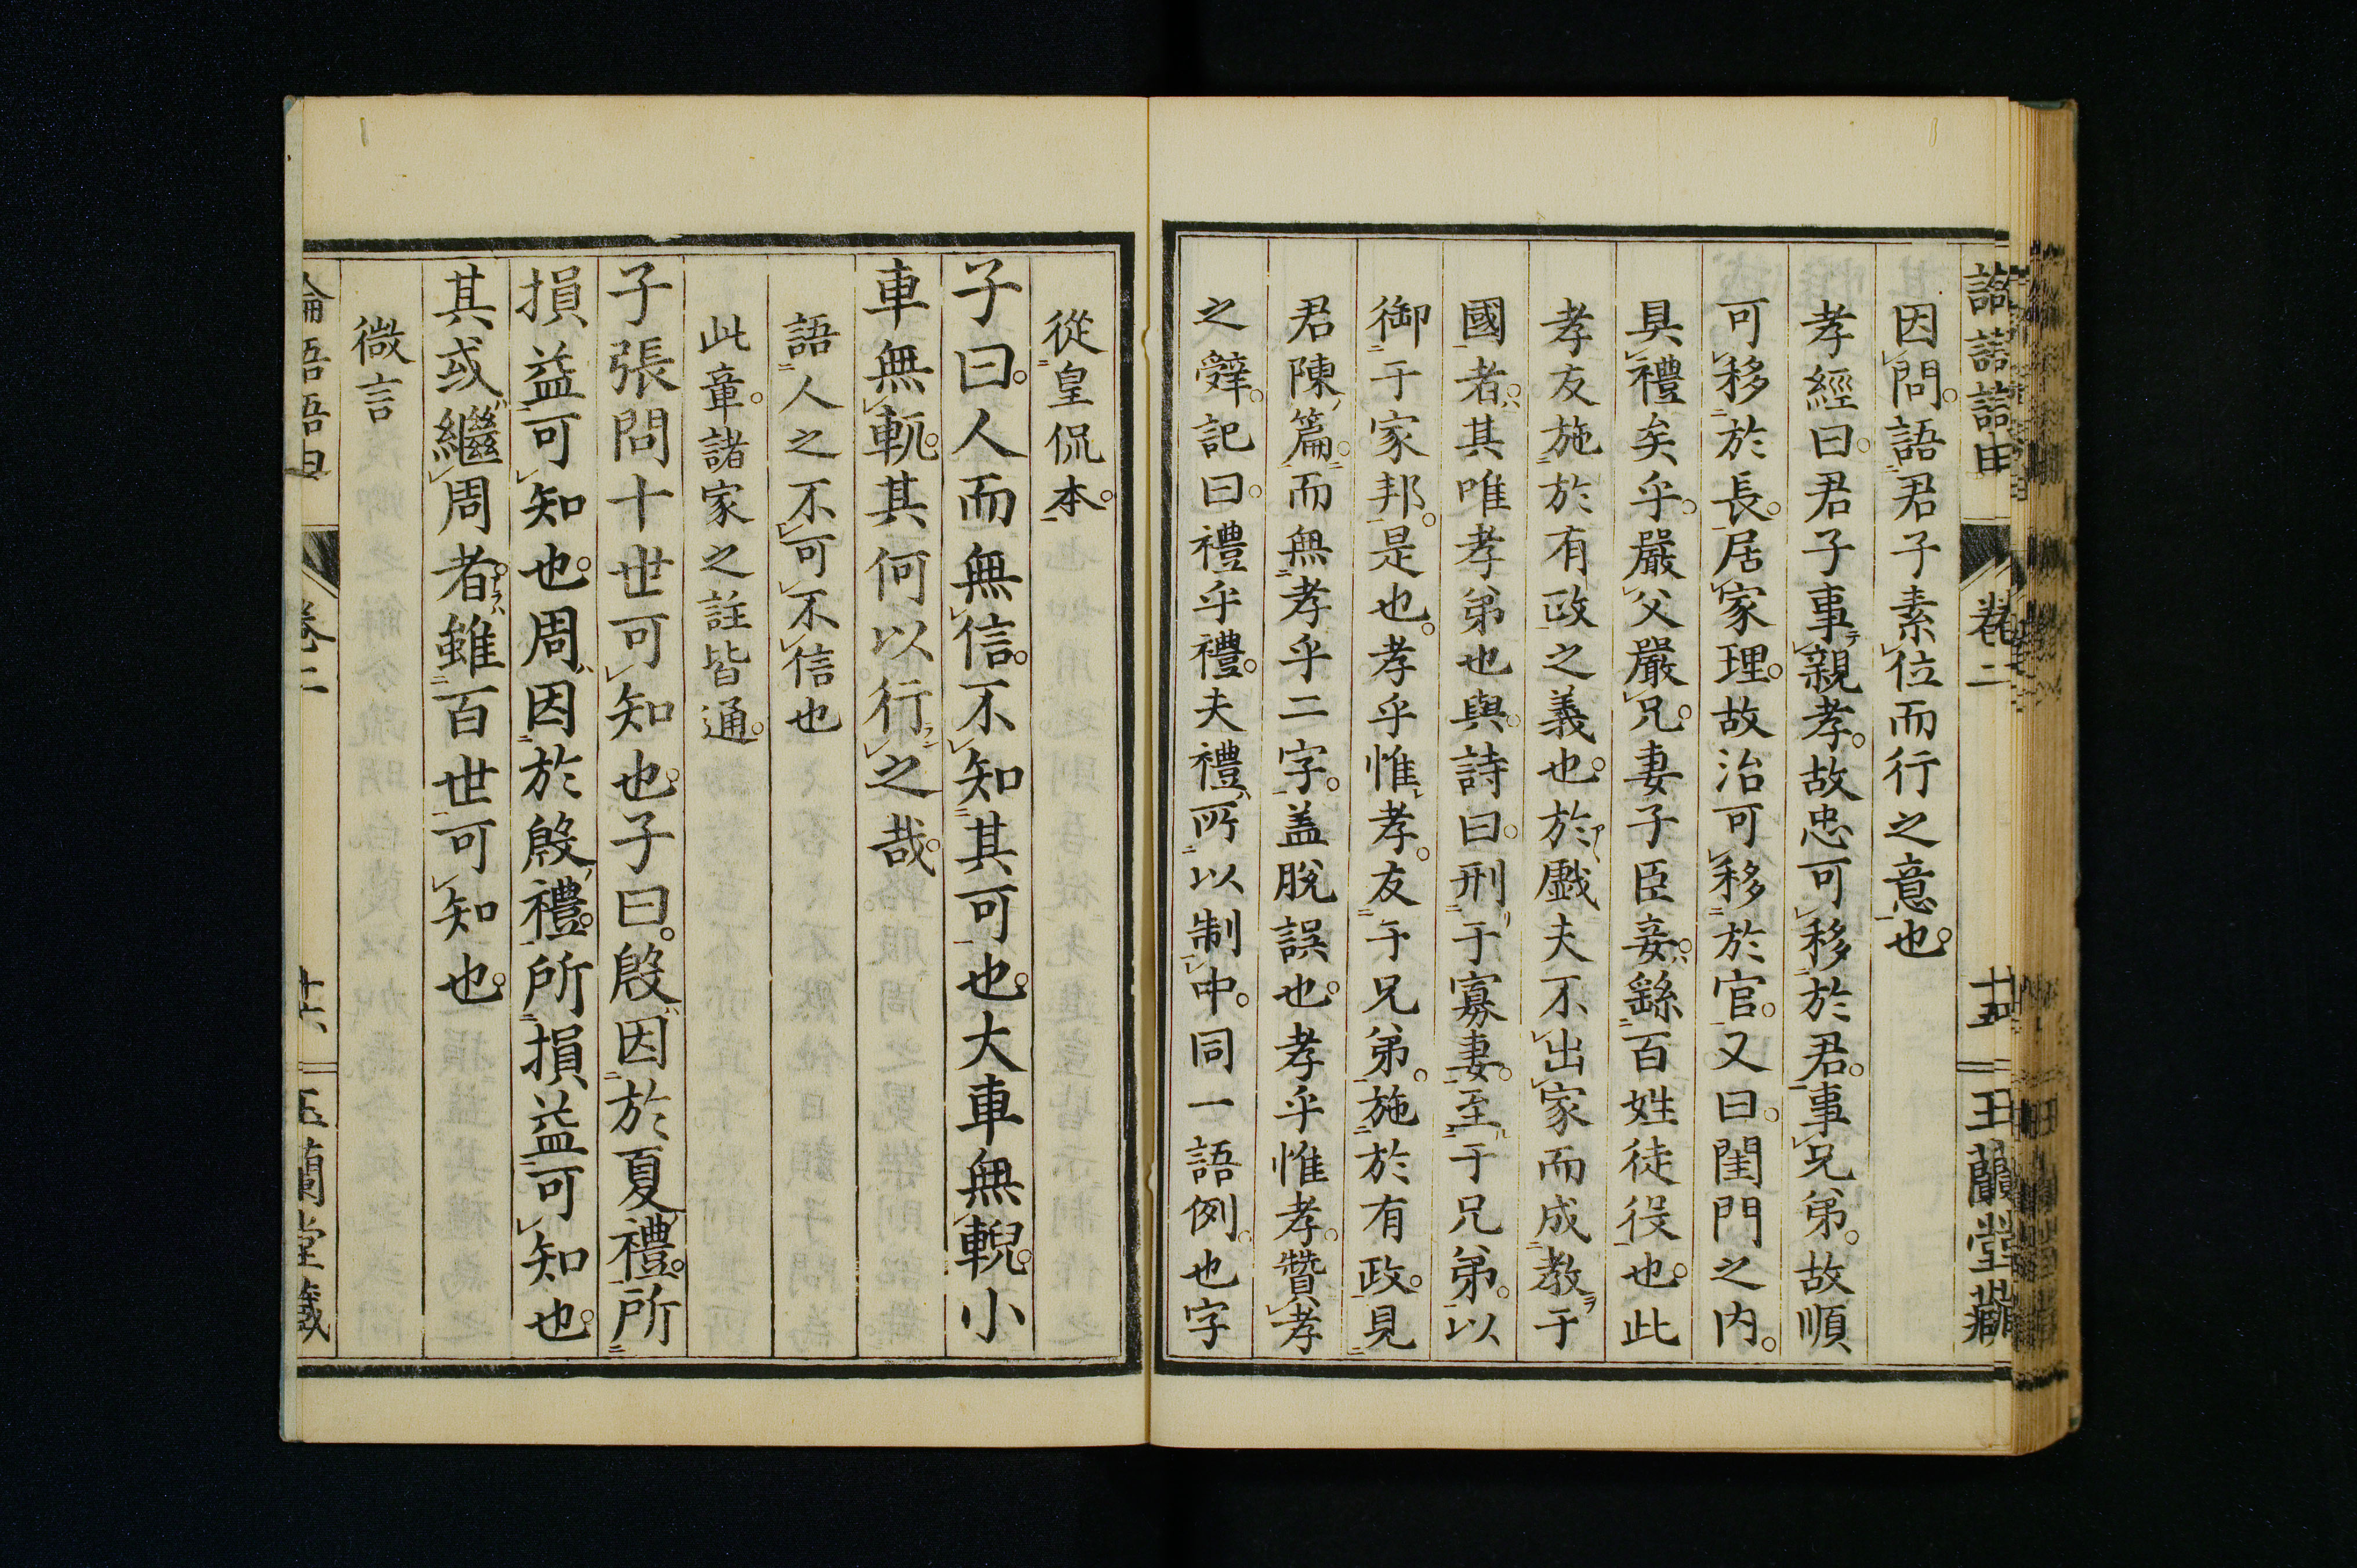 卷二
十五
玉蘭堂藏
因問。語君子素位而行之意也。
孝經曰。君子事親孝。故忠可移於君。事兄弟。故順
可移於長。居家理。故治可移於官。又曰。閨門之内。
具禮矣乎。嚴父嚴兄。妻子臣妾。繇百姓徒役也。此
孝友施於有政之義也。於戲夫不出家而成教于
國者。其唯孝弟也與。詩曰。刑于寡妻。至于兄弟。以
御于家邦。是也。孝乎惟孝。友于兄弟。施於有政。見
君陳篇。而無孝乎二字。盖脫誤也。孝乎惟孝。贊孝
之辭。記曰。禮乎禮。夫禮所以制中。同一語例。也字
從皇侃本。
子曰。人而無信。不知其可也。大車無輗。小
車無軏。其何以行之哉。
語人之不可不信也
此章。諸家之註皆通。
子張問十世可知也。子曰。殷因於夏禮。所
損益可知也。周因於殷禮。所損益可知也。
其或繼周者。雖百世可知也。
微言
卷二
十六
玉蘭堂藏